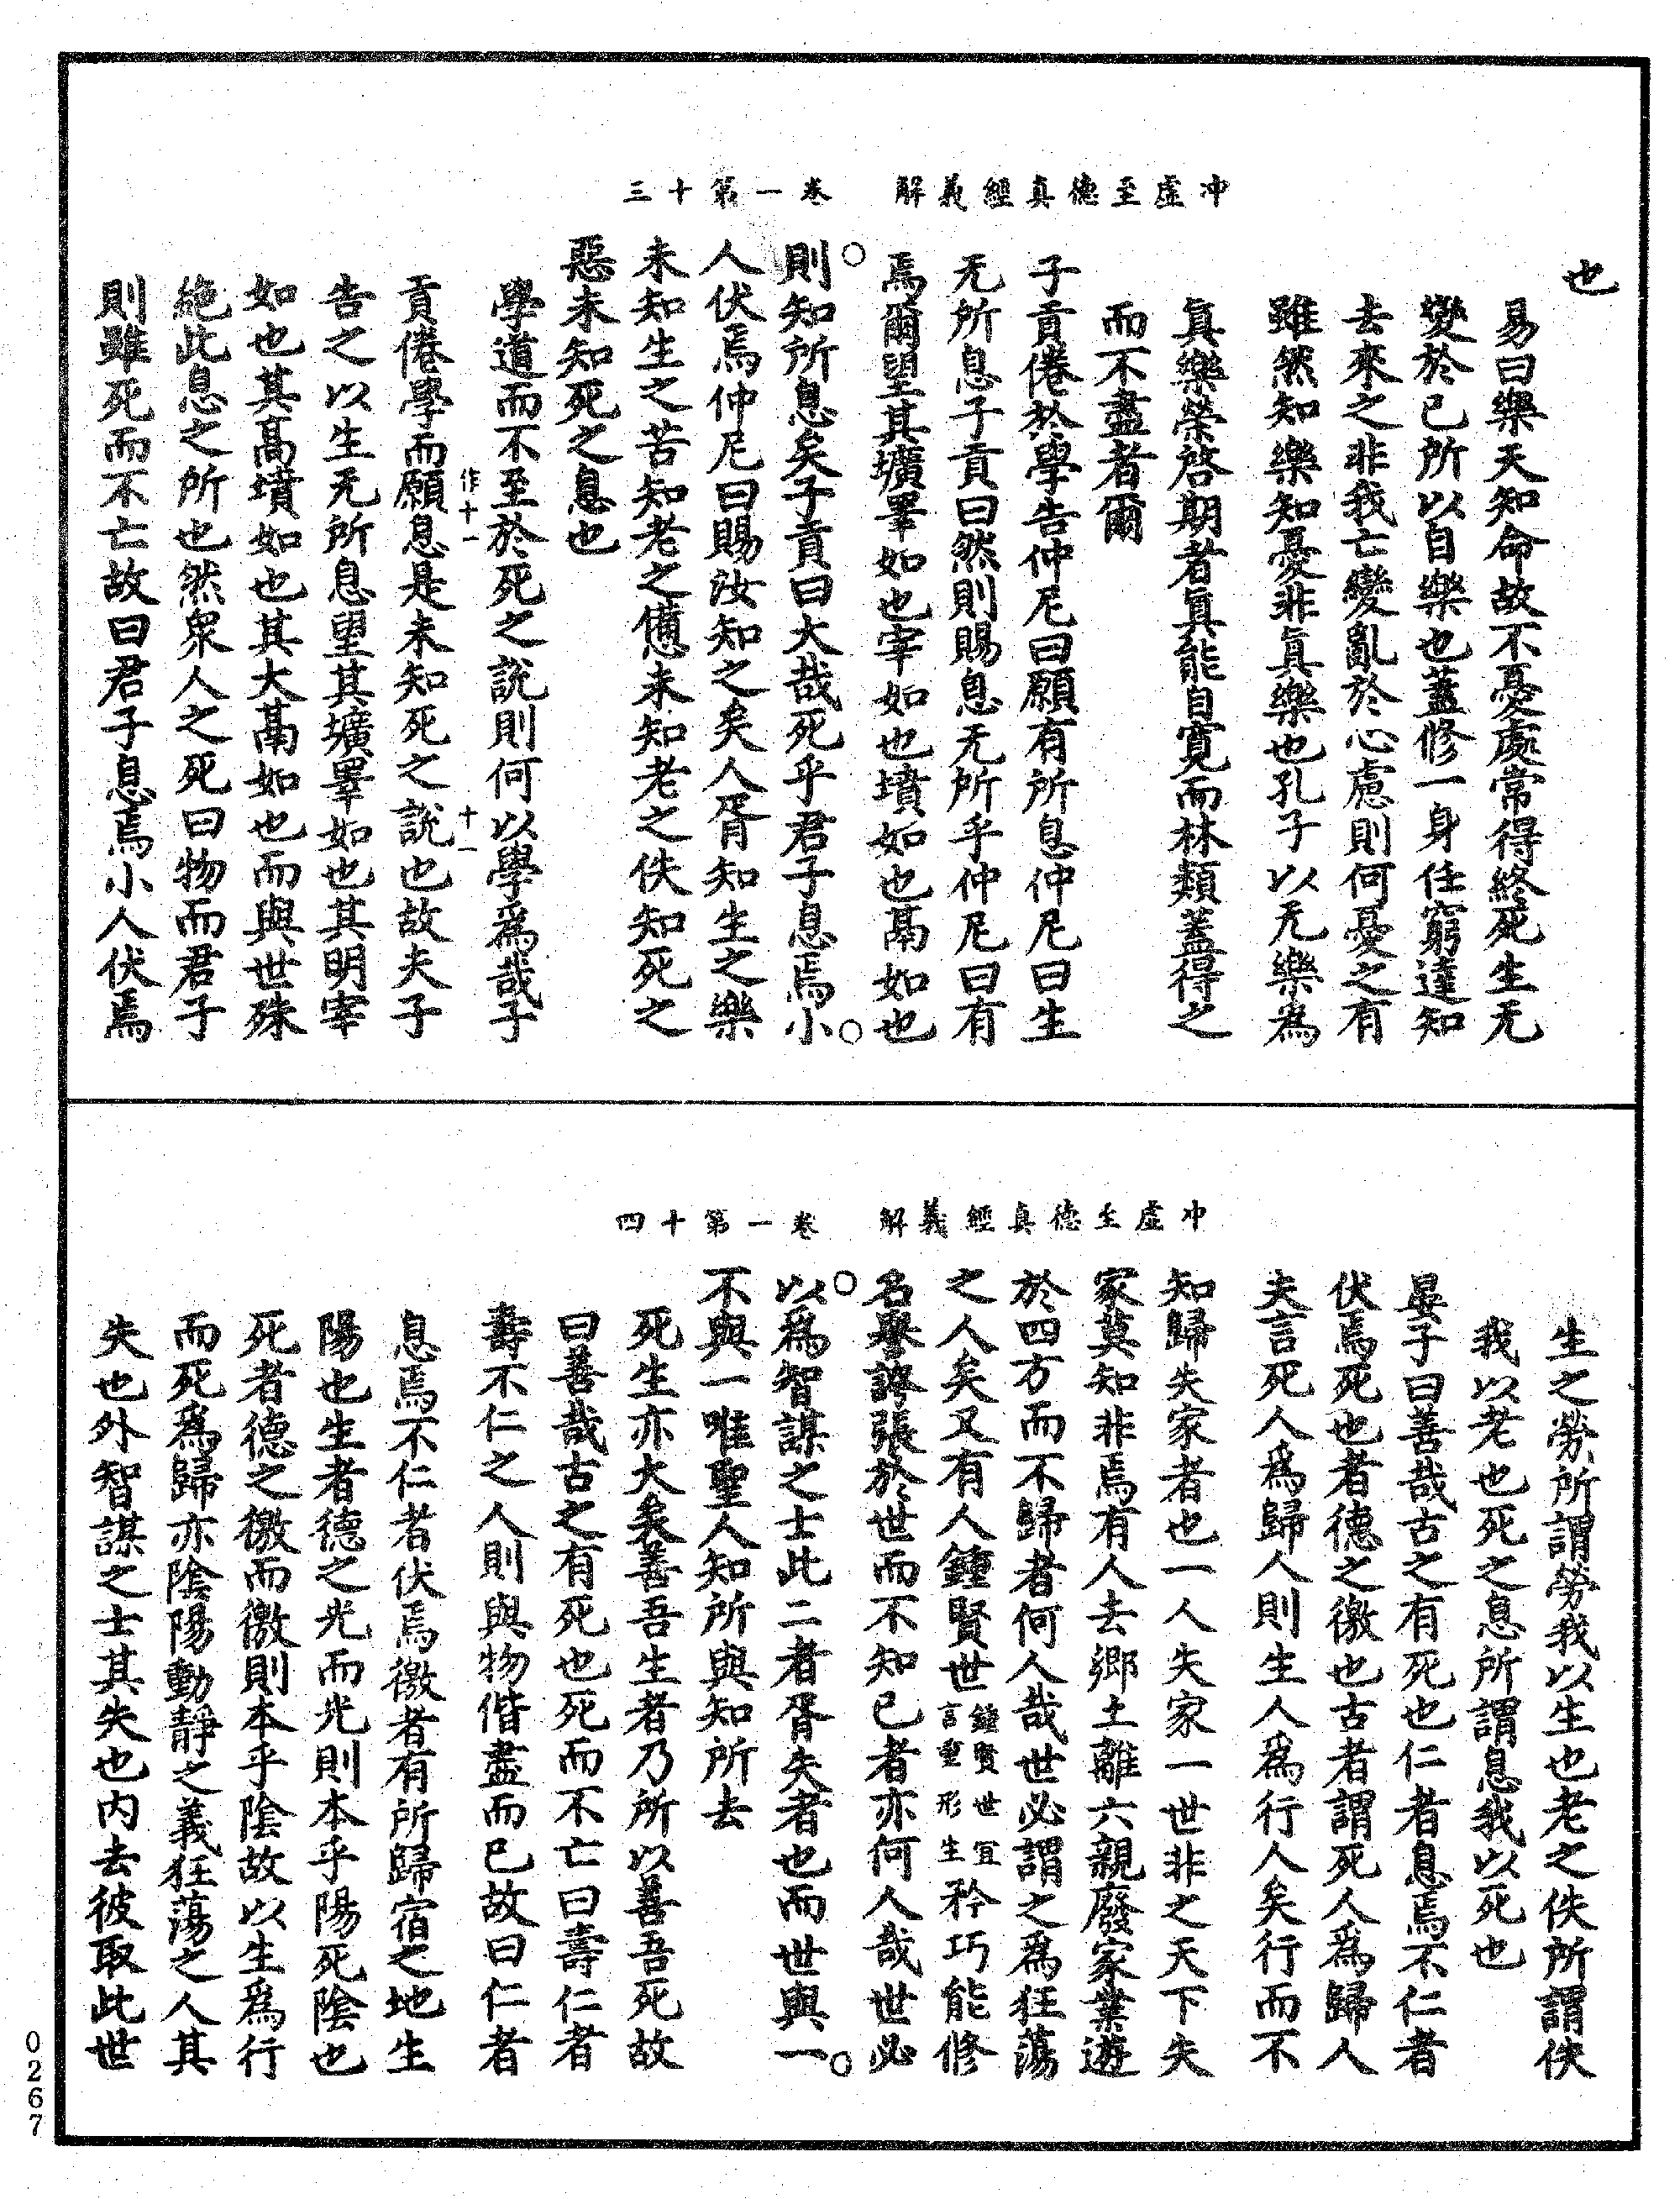 冲虛至德真經義解　卷一第十三
也
易曰樂天知命故不憂處常得終死生无
變於己所以自樂也蓋修一身任窮達知
去來之非我亡變亂於心慮則何憂之有
雖然知樂知憂非真樂也孔子以无樂為
真樂榮啓期者真能自寬而林類蓋得之
而不盡者爾
子貢倦於學告仲尼曰願有所息仲尼曰生
无所息子貢曰然則賜息无所乎仲尼曰有
焉爾望其壙睪如也宰如也墳如也鬲如也
則知所息矣子貢曰大哉死乎君子息焉小
人伏焉仲尼曰賜汝知之矣人胥知生之樂
未知生之苦知老之憊未知老之佚知死之
惡未知死之息也
學道而不至於死之說則何以學為哉子
作十一　十一
貢倦學而願息是未知死之說也故夫子
告之以生无所息望其壙睪如也其明宰
如也其高墳如也其大鬲如也而與世殊
絶此息之所也然衆人之死曰物而君子
則雖死而不亡故曰君子息焉小人伏焉
冲虛至德真經義解　卷一第十四
生之勞所謂勞我以生也老之佚所謂佚
我以老也死之息所謂息我以死也
晏子曰善哉古之有死也仁者息焉不仁者
伏焉死也者德之徼也古者謂死人為歸人
夫言死人為歸人則生人為行人矣行而不
知歸失家者也一人失家一世非之天下失
家莫知非焉有人去鄉土離六親廢家業遊
於四方而不歸者何人哉世必謂之為狂蕩
之人矣又有人鍾賢世鍾賢世宜言重形生矜巧能修
名譽誇張於世而不知已者亦何人哉世必
以為智謀之士此二者胥失者也而世與一
不與一唯聖人知所與知所去
死生亦大矣善吾生者乃所以善吾死故
曰善哉古之有死也死而不亡曰壽仁者
壽不仁之人則與物偕盡而已故曰仁者
息焉不仁者伏焉徼者有所歸宿之地生
陽也生者德之光而光則本乎陽死陰也
死者德之徼而徼則本乎陰故以生為行
而死為歸亦陰陽動靜之義狂蕩之人其
失也外智謀之士其失也内去彼取此世
0267